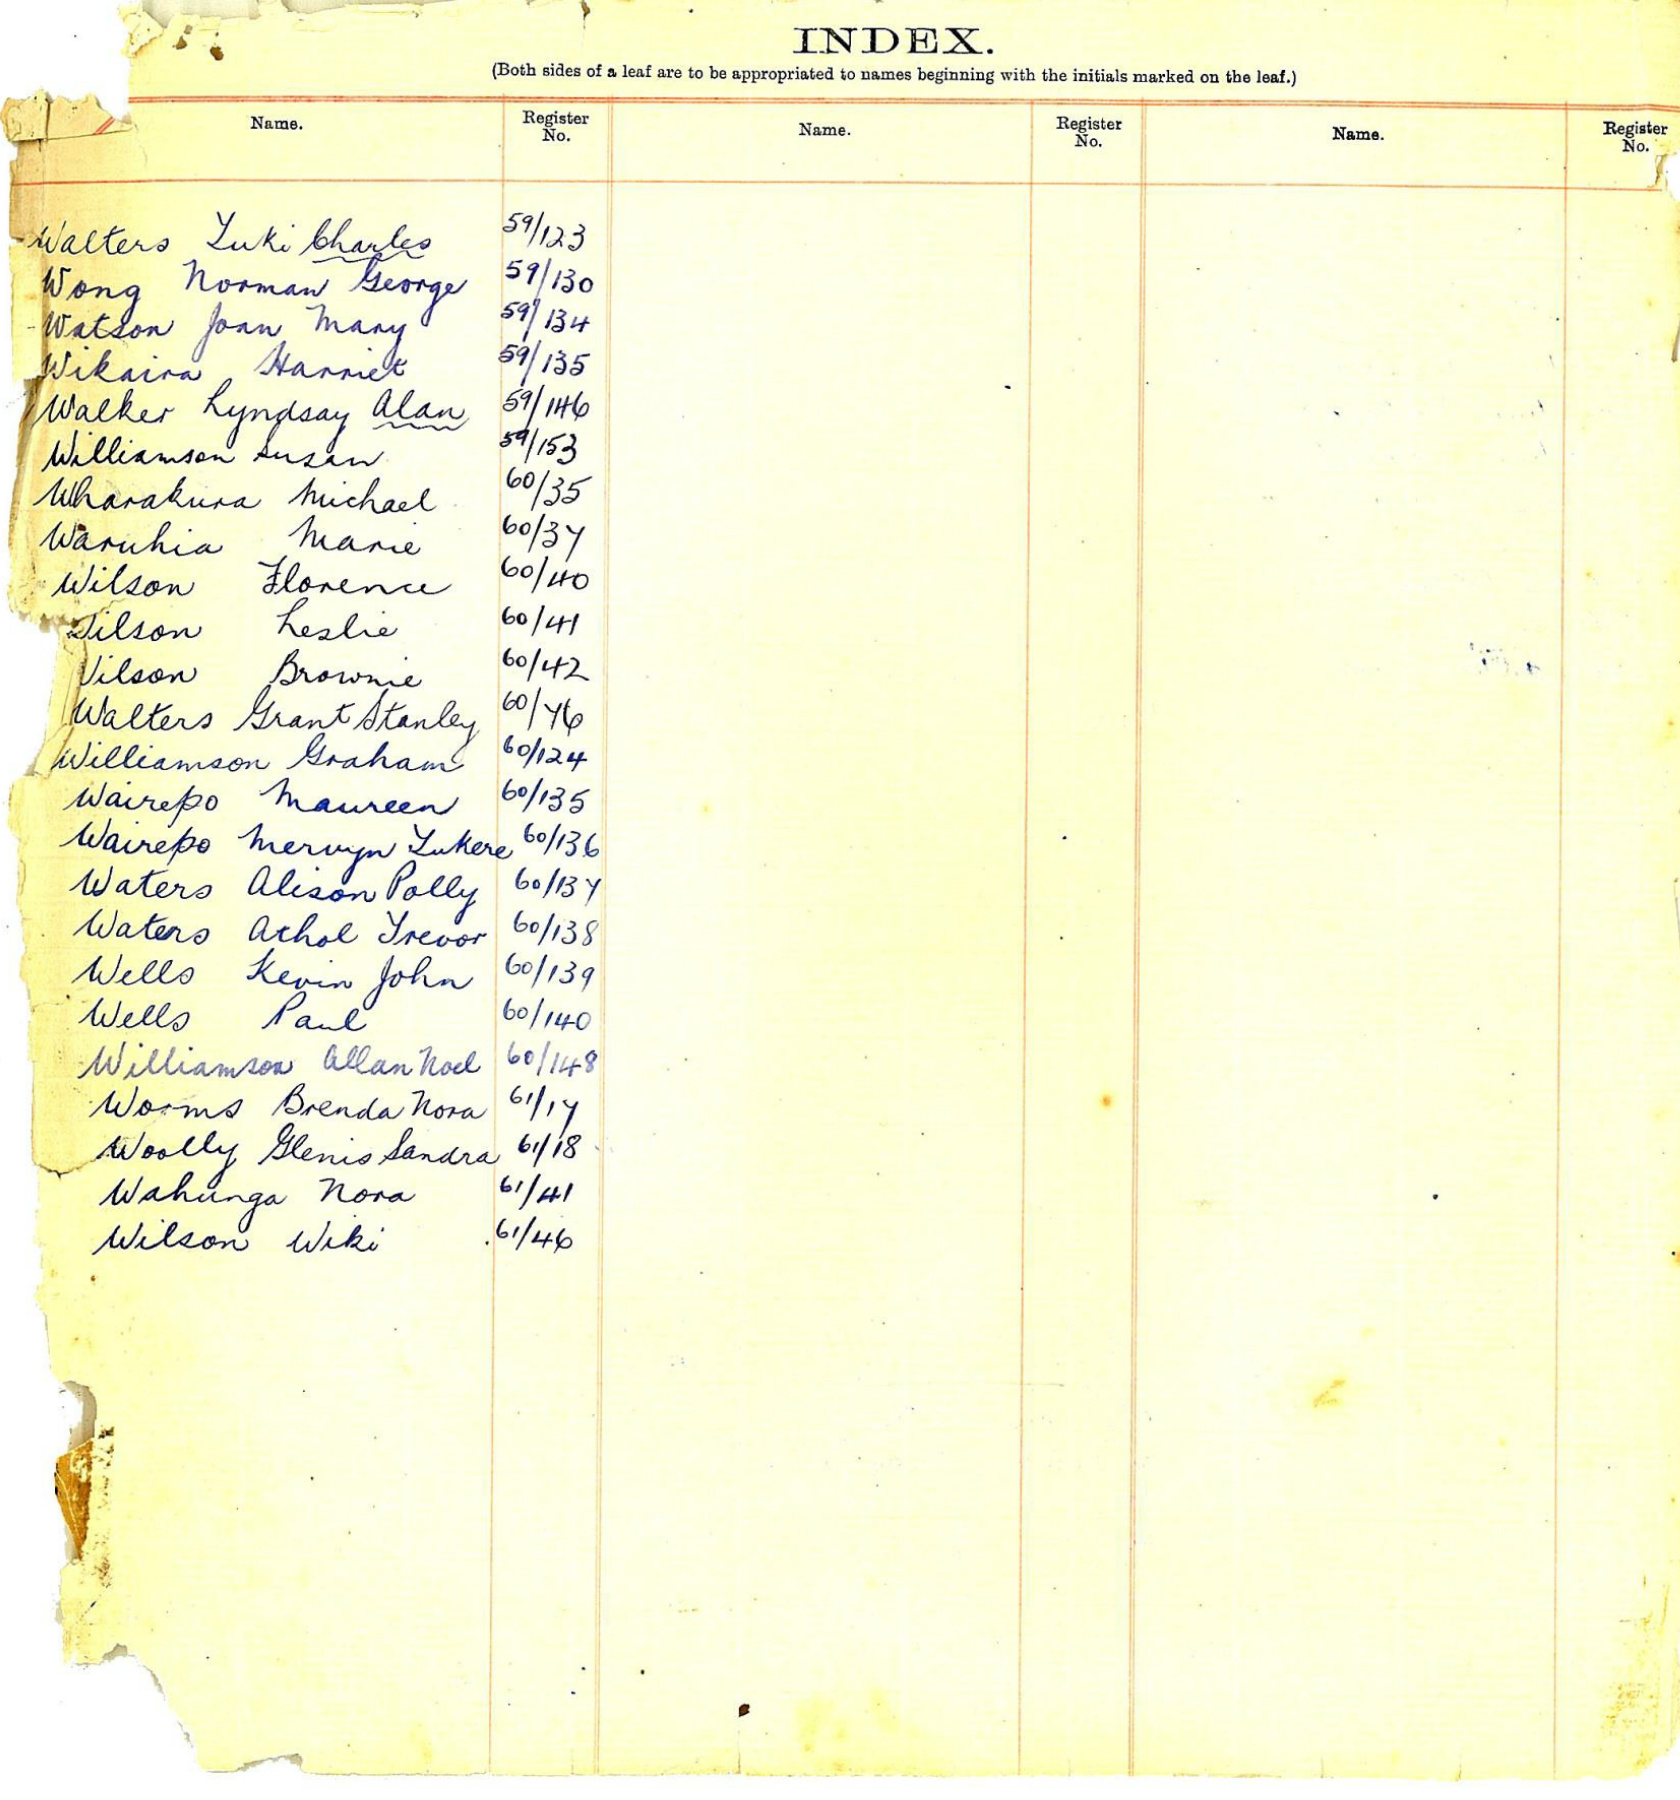 INDEX.
(Both sides of a leaf are to be appropriated to names beginning with the initials marked on the leaf.)
Name. Register No. Name. Register No. Name. Register No.
Walters Tuki Charles 59/123
Wong Norman George 59/130
Watson Joan Mary 59/134
Wikaira Harriet 59/135
Walker Lyndsay Alan 59/146
Williamson Susan 59/153
Wharakura Michael 60/35
Waruhia Marie 60/37
Wilson Florence 60/40
Wilson Leslie 60/41
Wilson Brownie 60/42
Walters Grant Stanley 60/76
Williamson Graham 60/124
Wairepo Maureen 60/135
Wairepo Mervyn Tukere 60/136
Waters Alison Polly 60/137
Waters Athol Trevor 60/138
Wells Kevin John 60/139
Wells Paul 60/140
Williamson Allan Noel 60/148
Worms Brenda Nora 61/17
Woolly Glenis Sandra 61/18
Wahunga Nora 61/41
Wilson Wiki 61/46